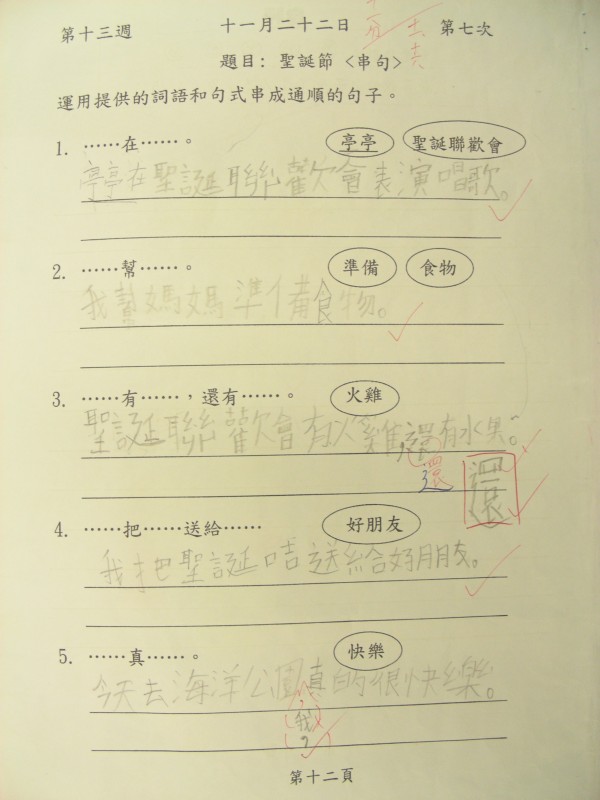 第十三週 十一月二十二日 第七次
題目：聖誕節〈串句〉
運用提供的詞語和句式串成通順的句子。
1. ……在……。 亭亭 聖誕聯歡會
亭亭在聖誕聯歡會表演唱歌。
2. ……幫……。 準備 食物
我幫媽媽準備食物。
3. ……有……，還有……。 火雞
聖誕聯歡會有火雞，還有水果。
還 還
4. ……把……送給…… 好朋友
我把聖誕咭送給好朋友。
5. ……真……。 快樂
今天去海洋公園真的很快樂。
，我
第十二頁